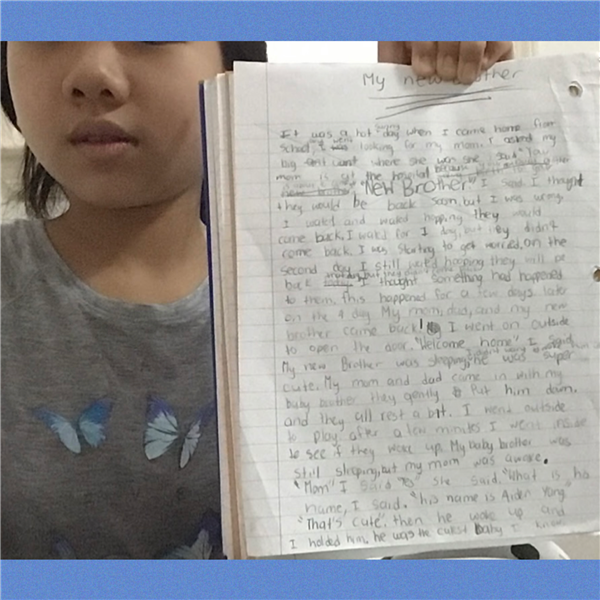 My new brother
It was a hot day when I came home from
school, I was looking for my mom. I asked my
big where she was she said "your
mom is at the hospital because
new brother "New Brother" I said I thought
they would be back soon, but I was wrong
I waited and waked hopping they would
come back, I waked for 1 day, but they didn't
come back. I was starting to get worried, on the
second day I still waked hooping they will be
back today I thought something had happened
to them. This happened for a few days later
on the 4 day My mom, dad, and my new
brother came back! I went on outside
to open the door. "Welcome home" I said,
My new Brother was sleeping, he was super
cute. My mom and dad came in with my
baby brother they gently put him down.
and they all rest a bit. I went outside
to play after a few minutes I went inside
to see if they woke up. My baby brother was
still sleeping, but my mom was awake.
"Mom" I said she said. "What is his
name, I said. "his name is Aiden Yang
"That's cute". then he woke up and
I holded him. he was the cutest baby I know